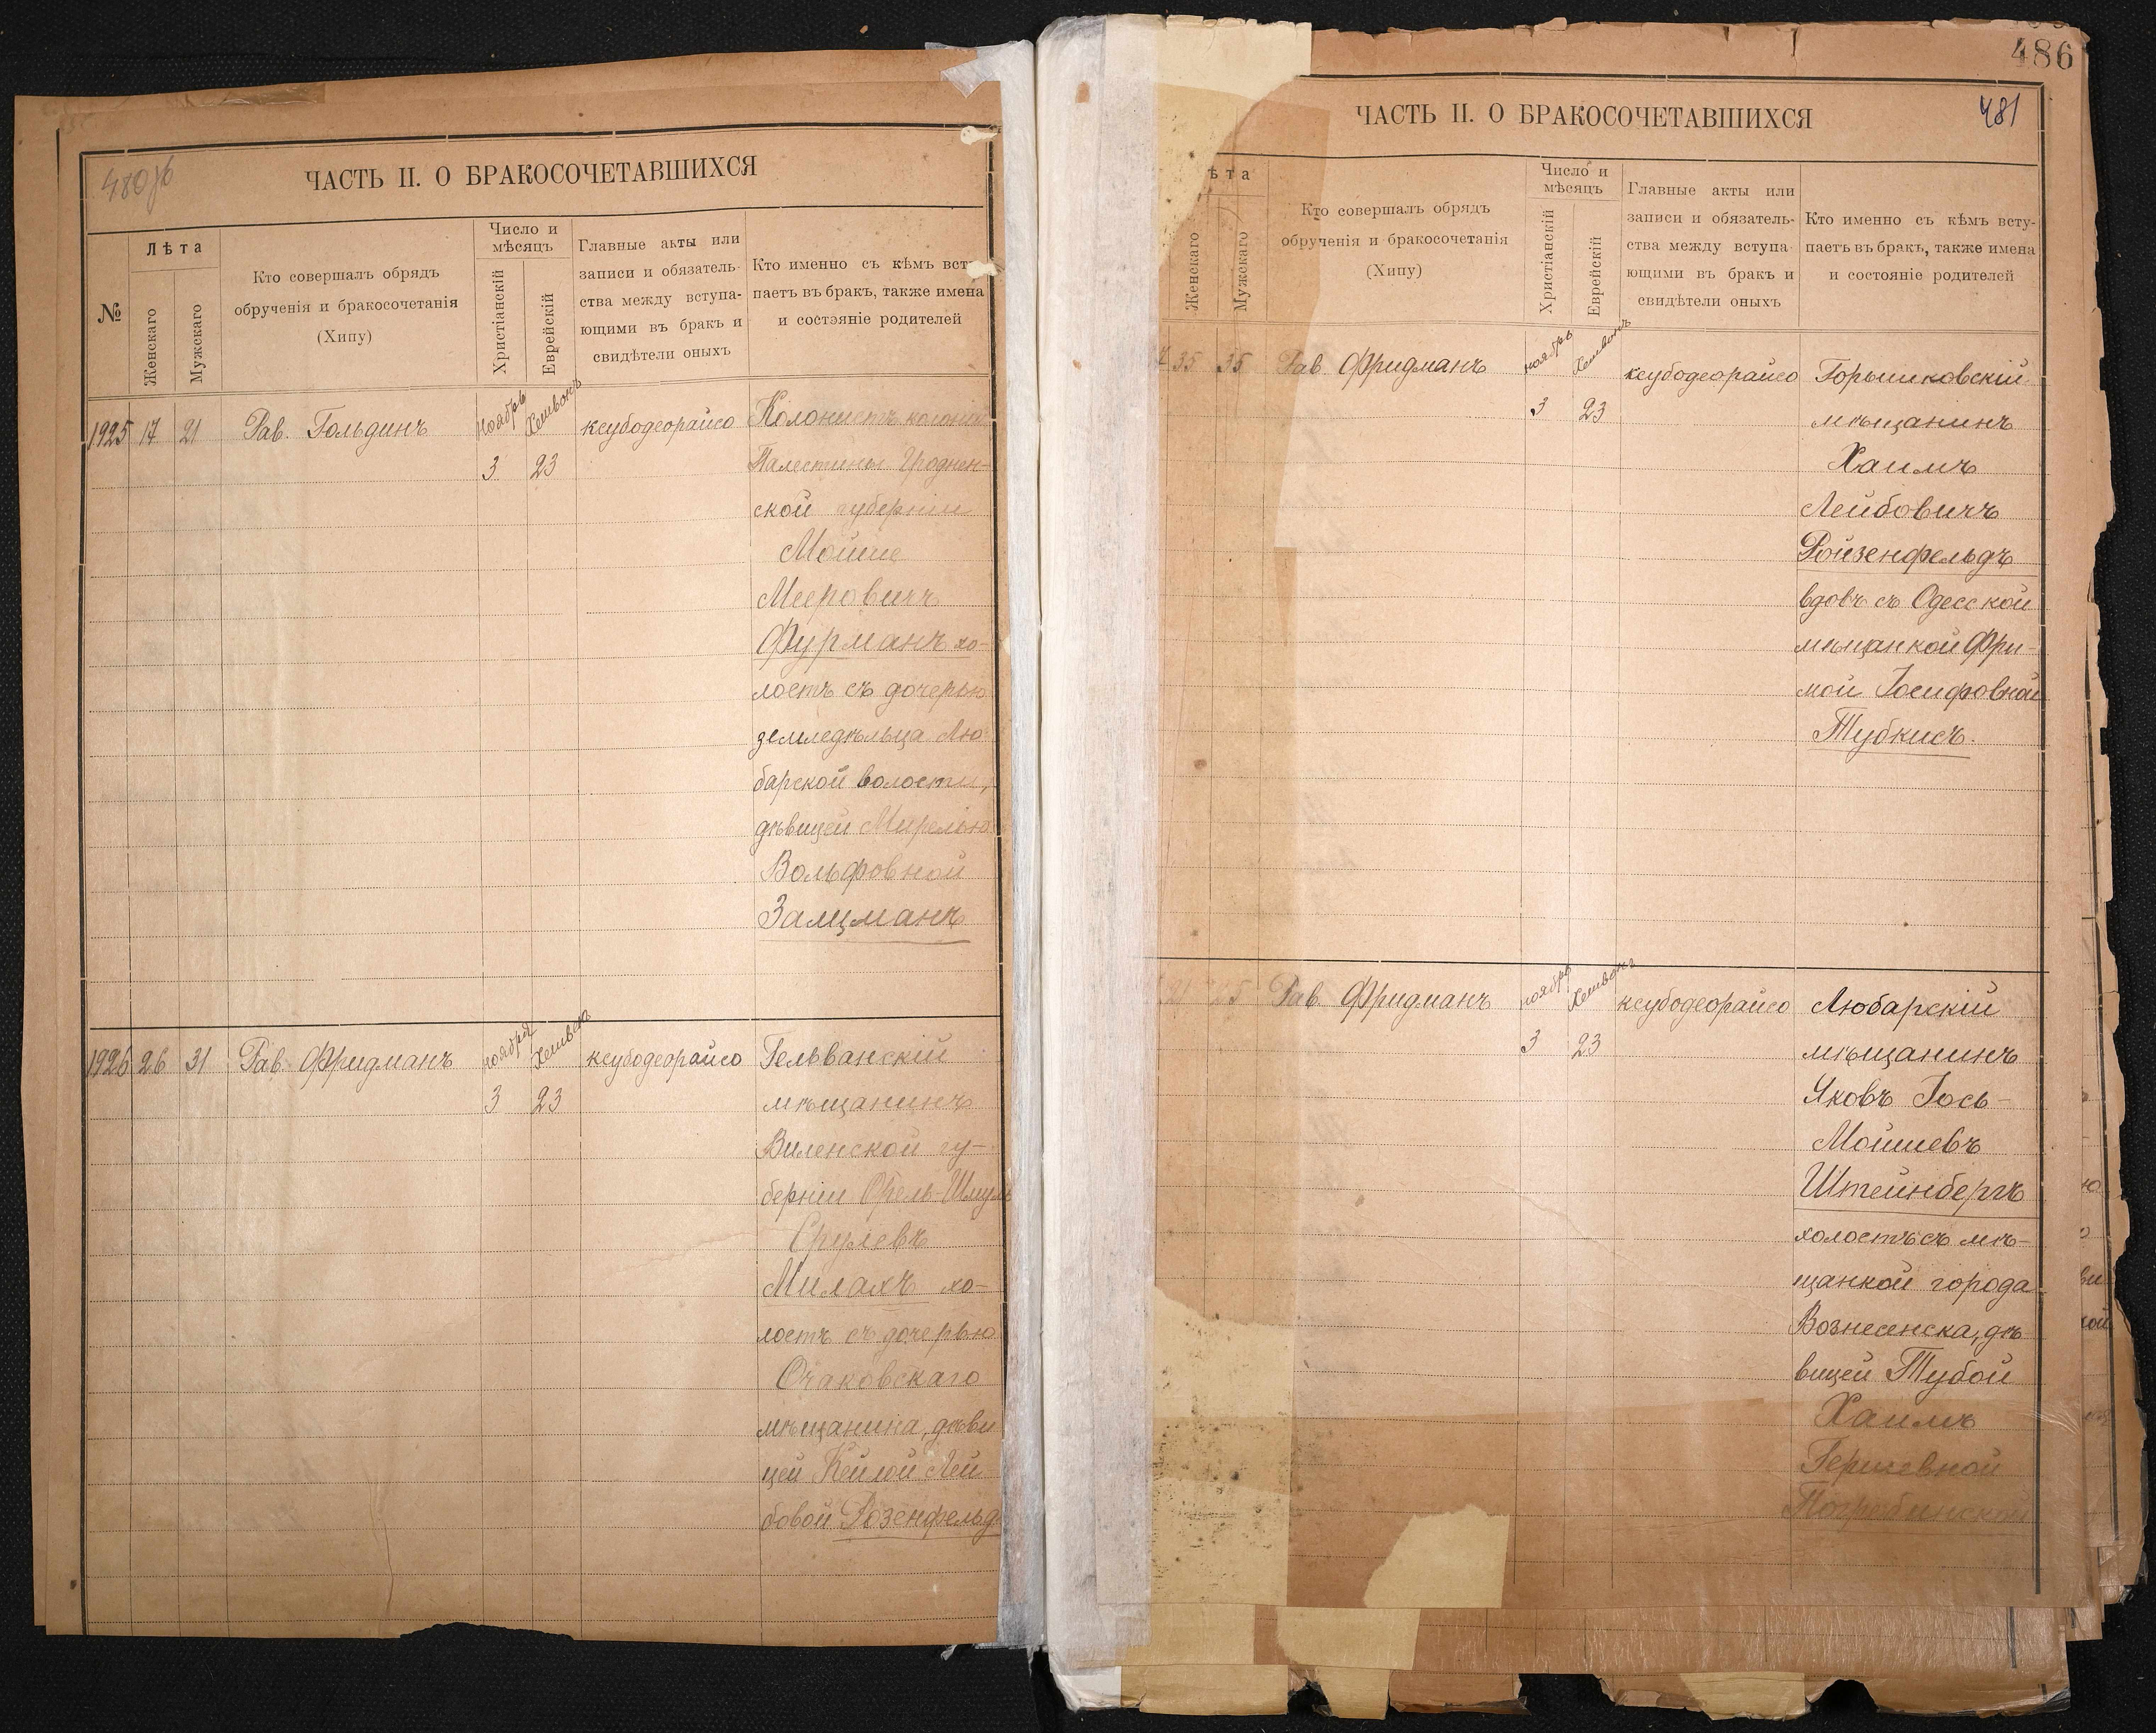 480об
ЧАСТЬ II. О БРАКОСОЧЕТАВШИХСЯ
№
Лѣта
Женскаго
Мужскаго
Кто совершалъ обрядъ
обрученія и бракосочетанія
(Хипу)
Число и
мѣсяцъ
Христіанскій
Еврейскій
Главные акты или
записи и обязатель-
ства между вступа-
ющими въ бракъ и
свидѣтели оныхъ
Кто именно съ кѣмъ всту
паетъ въ бракъ, также имена
и состояніе родителей
1925 17 21 Рав. Гольдинъ ноябрь Хешвонъ ксубодеорайсо Колонистъ колоніи
3 23 Палестины Гроднен-
ской губерніи
Мойше
Мееровичъ
Фурманъ хо-
лостъ съ дочерью
земледѣльца Лю
барской волости,
дѣвицей Мирелью
Вольфовной
Залцманъ
1926 26 31 Рав. Фридманъ ноября Хешвонъ ксубодеорайсо Гельванскій
3 23 мѣщанинъ
Виленской гу-
берніи Орель-Шмуль
Срулевъ
Милахъ хо-
лостъ съ дочерью
Очаковскаго
мѣщанина, дѣви
цей Кейлой Лей
бовой Розенфельдъ
486
ЧАСТЬ II. О БРАКОСОЧЕТАВШИХСЯ
481
ѣта
Женскаго
Мужскаго
Кто совершалъ обрядъ
обрученія и бракосочетанія
(Хипу)
Число и
мѣсяцъ
Христіанскій
Еврейскій
Главные акты или
записи и обязатель-
ства между вступа
ющими въ бракъ и
свидѣтели оныхъ
Кто именно съ кѣмъ всту-
паетъ въ бракъ, также имена
и состояніе родителей
35 35 Рав. Фридманъ ноябрь Хешвонъ ксубодеорайсо Горышковскій
3 23 мѣщанинъ
Хаимъ
Лейбовичъ
Ройзенфельдъ
вдовъ съ Одесской
мѣщанкой Фри-
мой Іосифовной
Тубкисъ.
21 25 Рав. Фридманъ ноябрь Хешвонъ ксубодеорайсо Любарскій
3 23 мѣщанинъ
Яковъ Іось-
Мойшевъ
Штейнбергъ
холостъ съ мѣ-
щанкой города
Вознесенска, дѣ
вицей Тубой
Хаимъ
Гершевной
Погребинской